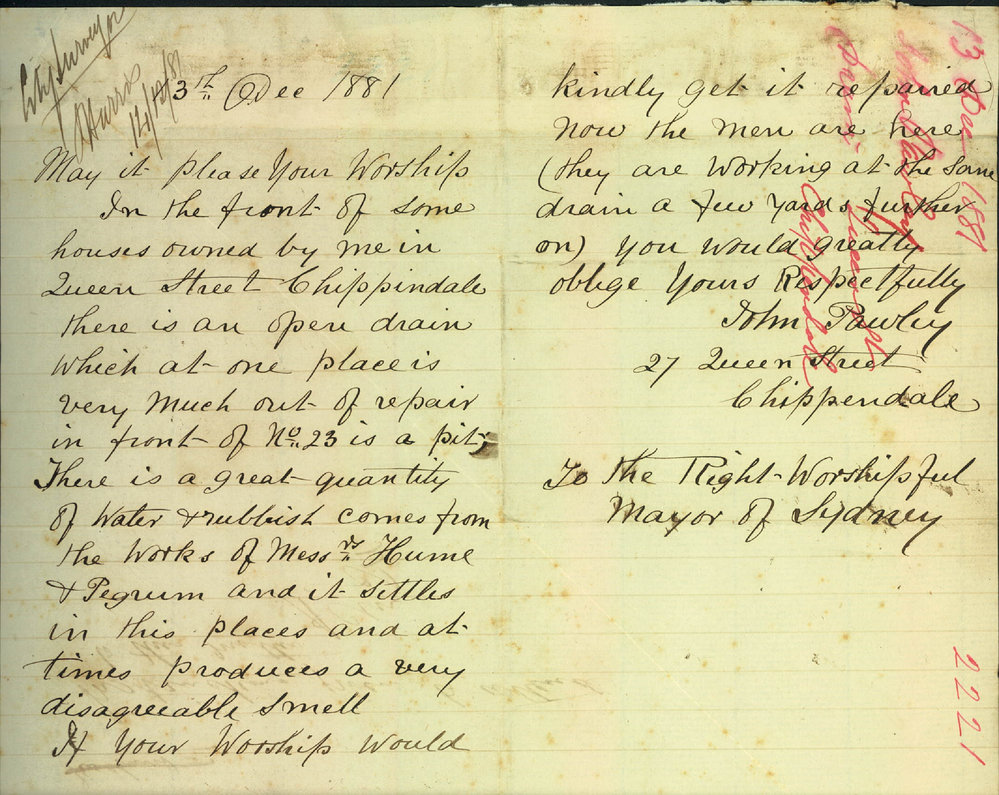 City Surveyor
JHarris
14/12/81
13th Dec 1881
May it please Your Worship
In the front of some
houses owned by me in
Queen Street Chippindale
there is an open drain
which at one place is
very much out of repair
in front of No. 23 is a pit,
There is a great quantity
of Water & rubbish comes from
the Works of Messrs Hume
& Pegrum and it settles
in this places and at
times produces a very
disagreeable smell
If Your Worship would
kindly get it repaired
now the men are here
(they are working at the same
drain a few yards further
on) you would greatly
oblege Yours Respectfully
John Pawley
27 Queen Street
Chippendale
To the Right Worshipful
Mayor of Sydney
13 Dec 1881
John Pawley
Drain
Queen St
Chippendale
2221